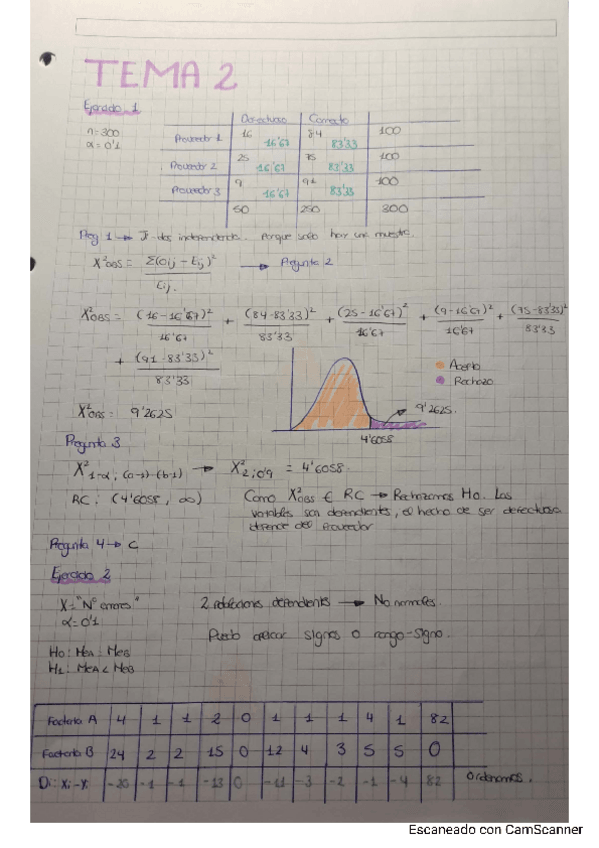 TEMA 2
Ejercicio 1
n=300
α=0'1
Defectuoso Correcto
Proveedor 1 16 16'67 84 83'33 100
Proveedor 2 25 16'67 75 83'33 100
Proveedor 3 9 16'67 91 83'33 100
50 250 300
Preg 1 → Ji-dos independencia. Porque solo hay una muestra.
X²OBS = Σ(Oij - Eij)² / Eij → Pregunta 2
X²OBS = (16-16'67)²/16'67 + (84-83'33)²/83'33 + (25-16'67)²/16'67 + (9-16'67)²/16'67 + (75-83'33)²/83'33
+ (91-83'33)²/83'33
Acepto
Rechazo
9'2625.
4'6058
X²OBS = 9'2625
Pregunta 3
X²1-α; (a-1)·(b-1) → X²2;0'9 = 4'6058.
RC: (4'6058, ∞) Como X²OBS ∈ RC → Rechazamos H0. Las
variables son dependientes, el hecho de ser defectuoso
depende del Proveedor
Pregunta 4 → C
Ejercicio 2
X="Nº errores" 2 poblaciones dependientes → No normales.
α=0'1
Puedo aplicar signos o rango-signo.
H0: MeA = MeB
H1: MeA < MeB
Factoría A 4 1 1 2 0 1 1 1 4 1 82
Factoría B 24 2 2 15 0 12 4 3 5 5 0
Di: Xi-Yi -20 -1 -1 -13 0 -11 -3 -2 -1 -4 82 Ordenamos.
Escaneado con CamScanner